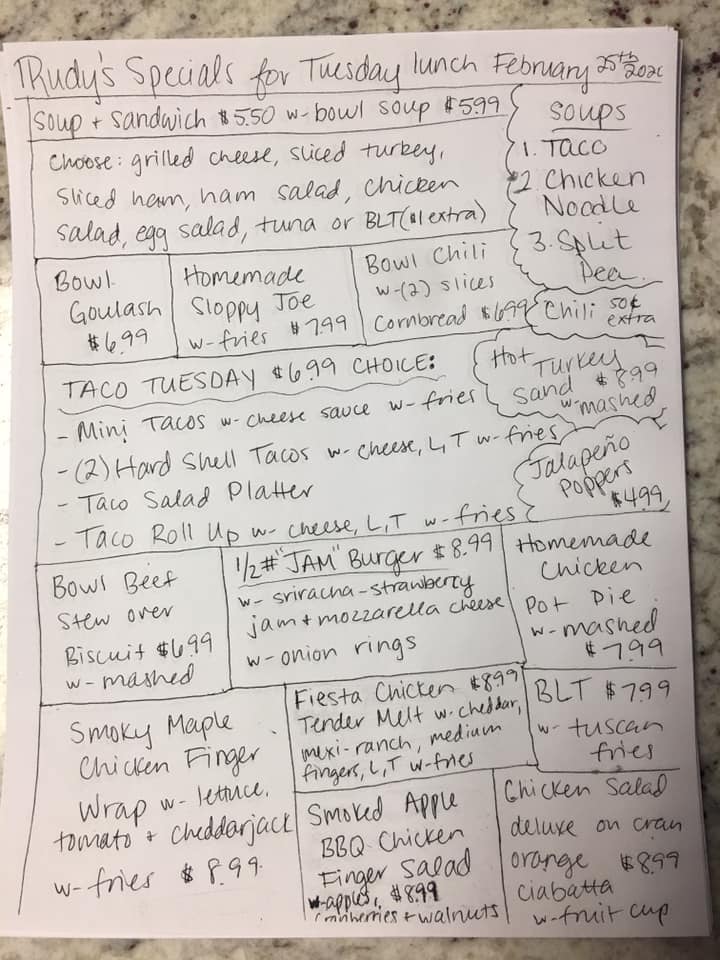 TRudy's Specials for Tuesday lunch February 25th 2020
Soup + sandwich $5.50 w-bowl soup $5.99
Choose: grilled cheese, sliced turkey,
sliced ham, ham salad, chicken
salad, egg salad, tuna or BLT ($1 extra)
Soups
1. Taco
2. Chicken
Noodle
3. Split
Pea
Chili 50¢
extra
Bowl
Goulash
$6.99
Homemade
Sloppy Joe
w-fries $7.99
Bowl Chili
w-(2) slices
Cornbread $6.99
Hot Turkey
Sand $8.99
w-mashed
TACO TUESDAY $6.99 CHOICE:
- Mini Tacos w-cheese sauce w-fries
- (2) Hard Shell Tacos w-cheese, L, T w-fries
- Taco Salad Platter
- Taco Roll Up w-cheese, L, T w-fries
Jalapeño
Poppers
$4.99
Bowl Beef
Stew over
Biscuit $6.99
w-mashed
1/2# "JAM" Burger $8.99
w-sriracha-strawberry
jam + mozzarella cheese
w-onion rings
Homemade
Chicken
Pot Pie
w-mashed
$7.99
Smoky Maple
Chicken Finger
Wrap w-lettuce,
tomato + cheddarjack
w-fries $8.99
Fiesta Chicken $8.99
Tender Melt w-cheddar,
mexi-ranch, medium
fingers, L, T w-fries
BLT $7.99
w-tuscan
fries
Smoked Apple
BBQ Chicken
Finger Salad
w-apples, $8.99
cranberries + walnuts
Chicken Salad
deluxe on cran
orange $8.99
ciabatta
w-fruit cup